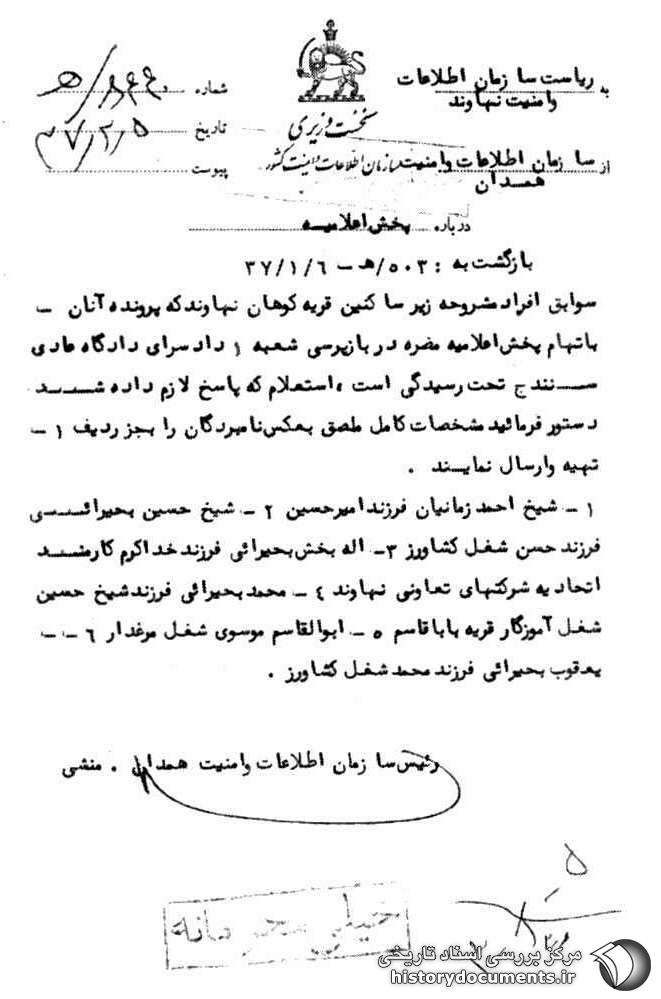 به ریاست سازمان اطلاعات
وامنیت نهاوند
از سازمان اطلاعات وامنیت
همدان
نخست وزیری
سازمان اطلاعات و امنیت کشور
شماره ۸۴۴۰/ه
تاریخ ۳۷/۲/۵
پیوست
درباره پخش اعلامیه
بازگشت به : ۵۰۳/هـ - ۳۷/۱/۶
سوابق افراد مشروحه زیر ساکنین قریه کوهان نهاوند که پرونده آنان -
باتهام پخش اعلامیه مضره در بازپرسی شعبه ۱ دادسرای دادگاه عادی
سنندج تحت رسیدگی است ، استعلام که پاسخ لازم داده شد
دستور فرمائید مشخصات کامل ملصق بعکس نامبردگان را بجز ردیف ۱ -
تهیه وارسال نمایند .
۱ - شیخ احمد زمانیان فرزند امیرحسین ۲ - شیخ حسین بحیرائی
فرزند حسن شغل کشاورز ۳- اله بخش بحیرائی فرزند خداکرم کارمند
اتحادیه شرکتهای تعاونی نهاوند ٤ - محمد بحیرائی فرزند شیخ حسین
شغل آموزگار قریه باباقاسم ۵ - ابوالقاسم موسوی شغل مرغدار ٦ - -
یعقوب بحیرائی فرزند محمد شغل کشاورز .
رئیس سازمان اطلاعات وامنیت همدان . منشی
خیلی محرمانه
مرکز بررسی اسناد تاریخی
historydocuments.ir